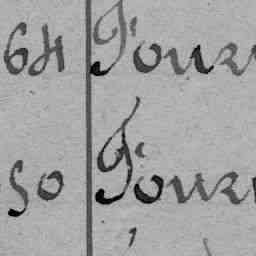 64 Tour
50 Tour